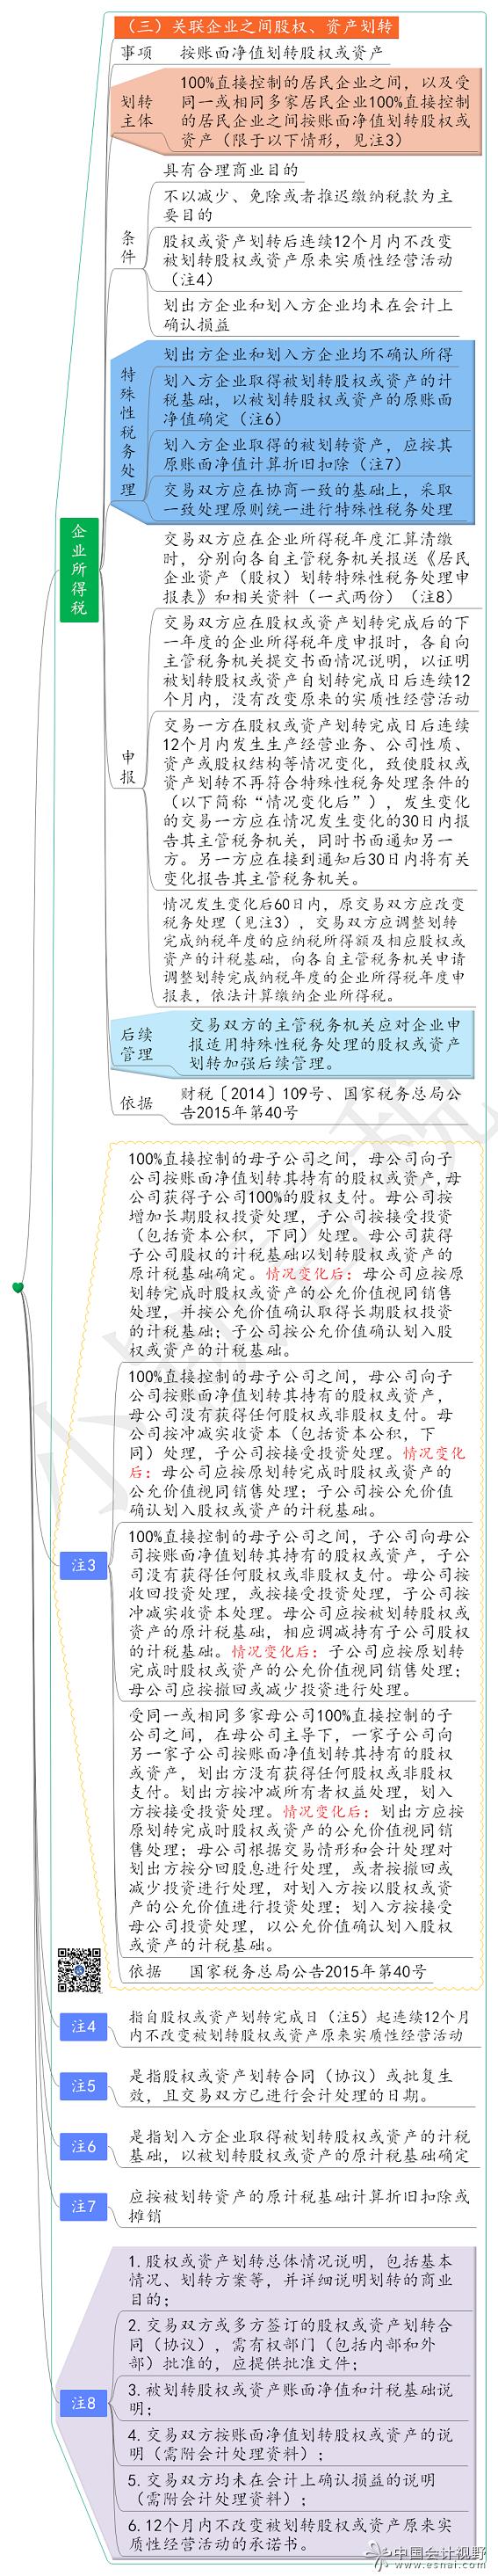 （三）关联企业之间股权、资产划转
事项
按账面净值划转股权或资产
划转
主体
100%直接控制的居民企业之间，以及受
同一或相同多家居民企业100%直接控制
的居民企业之间按账面净值划转股权或
资产（限于以下情形，见注3）
条
件
具有合理商业目的
不以减少、免除或者推迟缴纳税款为主
要目的
股权或资产划转后连续12个月内不改变
被划转股权或资产原来实质性经营活动
（注4）
划出方企业和划入方企业均未在会计上
确认损益
特
殊
性
税
务
处
理
划出方企业和划入方企业均不确认所得
划入方企业取得被划转股权或资产的计
税基础，以被划转股权或资产的原账面
净值确定（注6）
划入方企业取得的被划转资产，应按其
原账面净值计算折旧扣除（注7）
交易双方应在协商一致的基础上，采取
一致处理原则统一进行特殊性税务处理
企
业
所
得
税
申
报
交易双方应在企业所得税年度汇算清缴
时，分别向各自主管税务机关报送《居民
企业资产（股权）划转特殊性税务处理申
报表》和相关资料（一式两份）（注8）
交易双方应在股权或资产划转完成后的下
一年度的企业所得税年度申报时，各自向
主管税务机关提交书面情况说明，以证明
被划转股权或资产自划转完成日后连续12
个月内，没有改变原来的实质性经营活动
交易一方在股权或资产划转完成日后连续
12个月内发生生产经营业务、公司性质、
资产或股权结构等情况变化，致使股权或
资产划转不再符合特殊性税务处理条件的
（以下简称“情况变化后”），发生变化
的交易一方应在情况发生变化的30日内报
告其主管税务机关，同时书面通知另一
方。另一方应在接到通知后30日内将有关
变化报告其主管税务机关。
情况发生变化后60日内，原交易双方应改变
税务处理（见注3），交易双方应调整划转
完成纳税年度的应纳税所得额及相应股权或
资产的计税基础，向各自主管税务机关申请
调整划转完成纳税年度的企业所得税年度申
报表，依法计算缴纳企业所得税。
后续
管理
交易双方的主管税务机关应对企业申
报适用特殊性税务处理的股权或资产
划转加强后续管理。
依据
财税〔2014〕109号、国家税务总局公
告2015年第40号
注3
100%直接控制的母子公司之间，母公司向子
公司按账面净值划转其持有的股权或资产,母
公司获得子公司100%的股权支付。母公司按
增加长期股权投资处理，子公司按接受投资
（包括资本公积，下同）处理。母公司获得
子公司股权的计税基础以划转股权或资产的
原计税基础确定。情况变化后：母公司应按原
划转完成时股权或资产的公允价值视同销售
处理，并按公允价值确认取得长期股权投资
的计税基础；子公司按公允价值确认划入股
权或资产的计税基础。
100%直接控制的母子公司之间，母公司向子
公司按账面净值划转其持有的股权或资产，
母公司没有获得任何股权或非股权支付。母
公司按冲减实收资本（包括资本公积，下
同）处理，子公司按接受投资处理。情况变化
后：母公司应按原划转完成时股权或资产的
公允价值视同销售处理；子公司按公允价值
确认划入股权或资产的计税基础。
100%直接控制的母子公司之间，子公司向母公
司按账面净值划转其持有的股权或资产，子公
司没有获得任何股权或非股权支付。母公司按
收回投资处理，或按接受投资处理，子公司按
冲减实收资本处理。母公司应按被划转股权或
资产的原计税基础，相应调减持有子公司股权
的计税基础。情况变化后：子公司应按原划转
完成时股权或资产的公允价值视同销售处理；
母公司应按撤回或减少投资进行处理。
受同一或相同多家母公司100%直接控制的子
公司之间，在母公司主导下，一家子公司向
另一家子公司按账面净值划转其持有的股权
或资产，划出方没有获得任何股权或非股权
支付。划出方按冲减所有者权益处理，划入
方按接受投资处理。情况变化后：划出方应按
原划转完成时股权或资产的公允价值视同销
售处理；母公司根据交易情形和会计处理对
划出方按分回股息进行处理，或者按撤回或
减少投资进行处理，对划入方按以股权或资
产的公允价值进行投资处理；划入方按接受
母公司投资处理，以公允价值确认划入股权
或资产的计税基础。
依据
国家税务总局公告2015年第40号
注4
指自股权或资产划转完成日（注5）起连续12个月
内不改变被划转股权或资产原来实质性经营活动
注5
是指股权或资产划转合同（协议）或批复生
效，且交易双方已进行会计处理的日期。
注6
是指划入方企业取得被划转股权或资产的计税
基础，以被划转股权或资产的原计税基础确定
注7
应按被划转资产的原计税基础计算折旧扣除或
摊销
注8
1.股权或资产划转总体情况说明，包括基本
情况、划转方案等，并详细说明划转的商业
目的；
2.交易双方或多方签订的股权或资产划转合
同（协议），需有权部门（包括内部和外
部）批准的，应提供批准文件；
3.被划转股权或资产账面净值和计税基础说
明；
4.交易双方按账面净值划转股权或资产的说
明（需附会计处理资料）；
5.交易双方均未在会计上确认损益的说明
（需附会计处理资料）；
6.12个月内不改变被划转股权或资产原来实
质性经营活动的承诺书。
中国会计视野
www.esnai.com